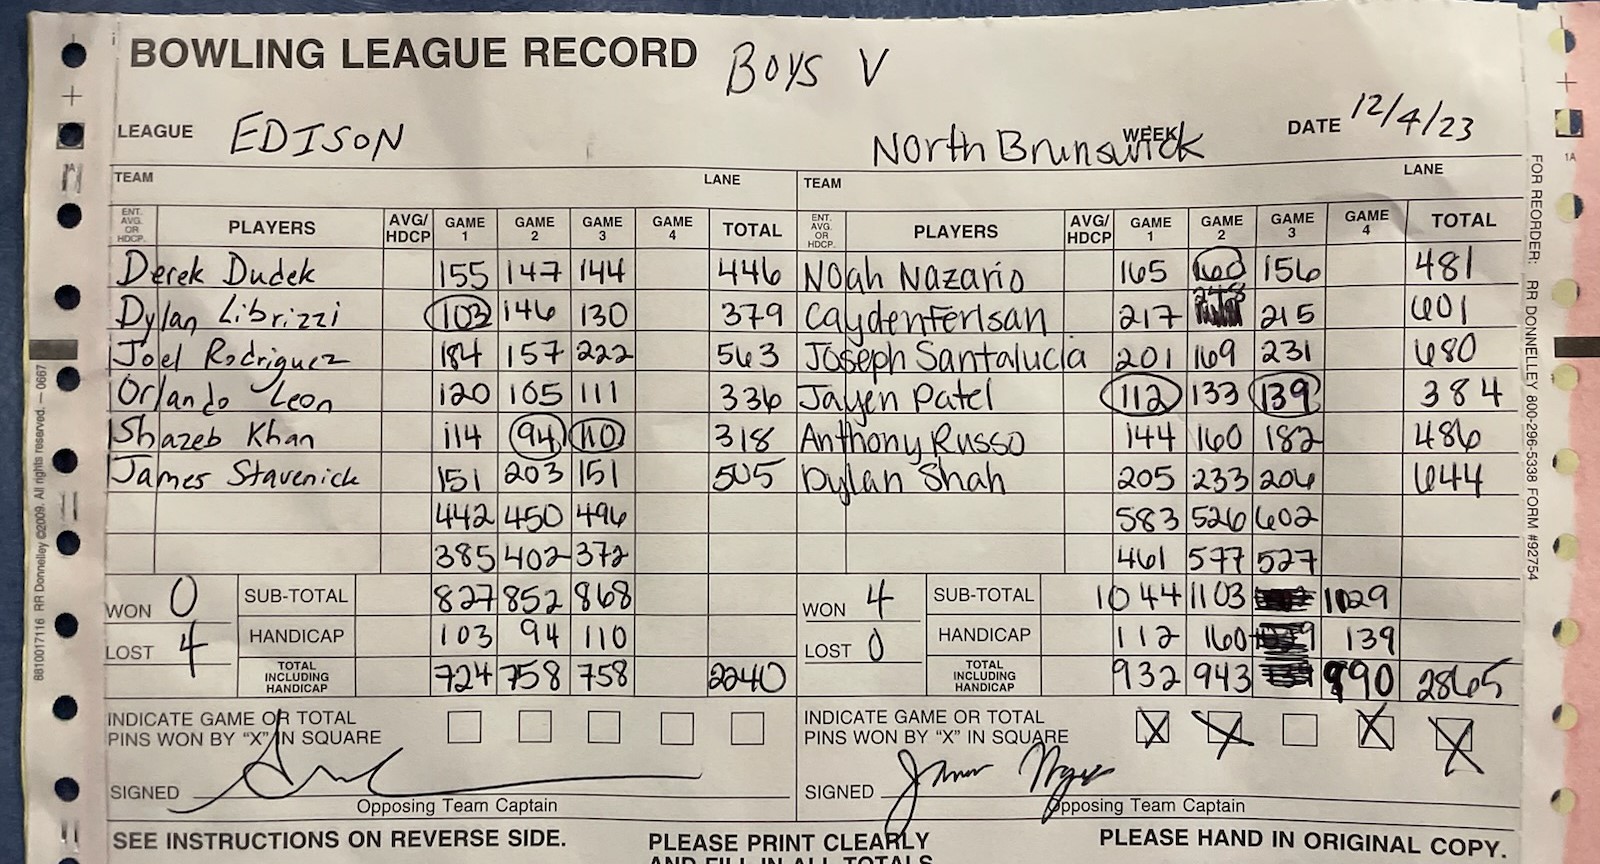 BOWLING LEAGUE RECORD Boys V
LEAGUE EDISON North Brunswick WEEK DATE 12/4/23
TEAM LANE TEAM LANE
ENT. AVG. OR HDCP. PLAYERS AVG/HDCP GAME 1 GAME 2 GAME 3 GAME 4 TOTAL ENT. AVG. OR HDCP. PLAYERS AVG/HDCP GAME 1 GAME 2 GAME 3 GAME 4 TOTAL
Derek Dudek 155 147 144 446 Noah Nazario 165 160 156 481
Dylan Librizzi 103 146 130 379 Cayden Ferlsan 217 248 215 601
Joel Rodriguez 184 157 222 563 Joseph Santalucia 201 169 231 680
Orlando Leon 120 105 111 336 Jayen Patel 112 133 139 384
Shazeb Khan 114 94 110 318 Anthony Russo 144 160 182 486
James Stavenick 151 203 151 505 Dylan Shah 205 233 206 644
442 450 496 583 526 602
385 402 372 461 577 527
WON 0 SUB-TOTAL 827 852 868 WON 4 SUB-TOTAL 1044 1103 1129
LOST 4 HANDICAP 103 94 110 LOST 0 HANDICAP 112 160 139
TOTAL INCLUDING HANDICAP 724 758 758 2240 TOTAL INCLUDING HANDICAP 932 943 990 2865
INDICATE GAME OR TOTAL PINS WON BY "X" IN SQUARE INDICATE GAME OR TOTAL PINS WON BY "X" IN SQUARE X X X X
SIGNED SIGNED
Opposing Team Captain Opposing Team Captain
SEE INSTRUCTIONS ON REVERSE SIDE. PLEASE PRINT CLEARLY PLEASE HAND IN ORIGINAL COPY.
AND FILL IN ALL TOTALS
8810017116 RR Donnelley ©2009. All rights reserved. — 0667
FOR REORDER: RR DONNELLEY 800-296-5338 FORM #92754
1A